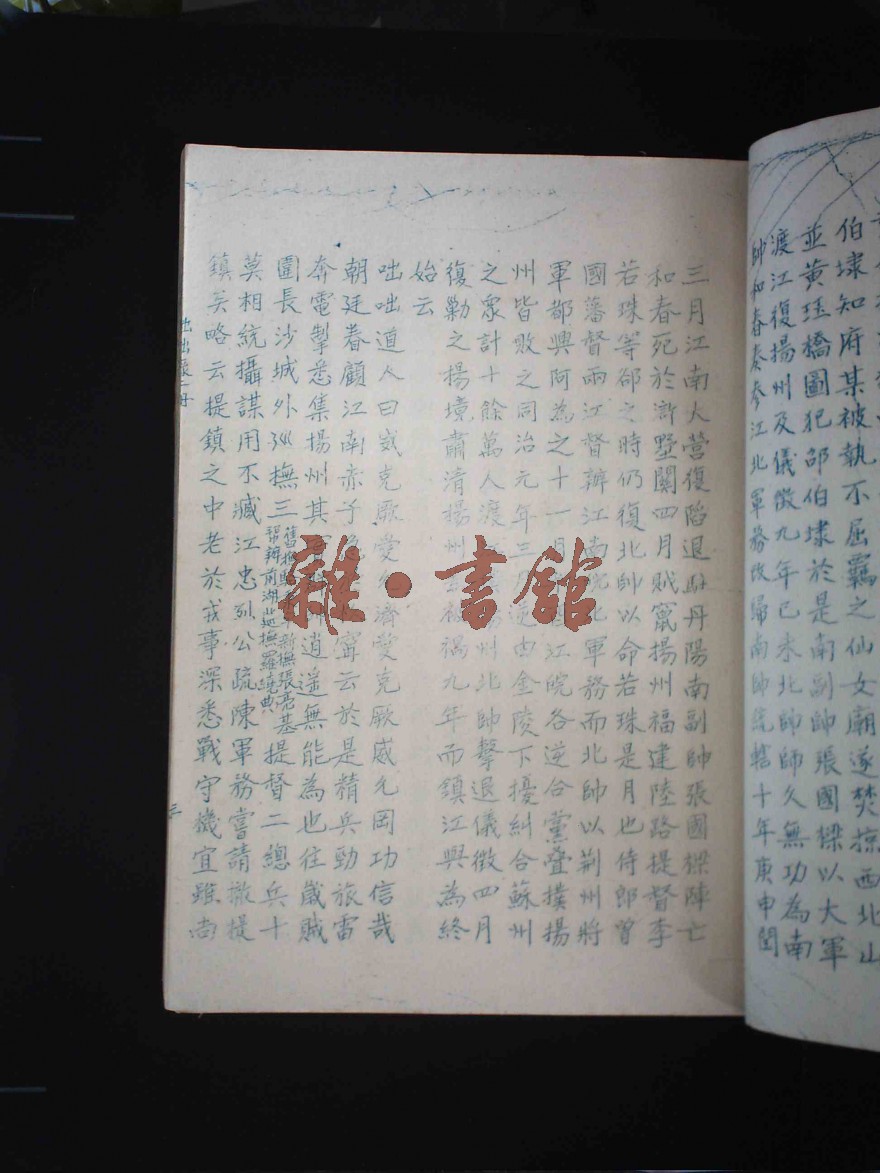 伯埭知府某被執不屈羈之仙女廟遂焚掠西北山
並黃珏橋圖犯邵伯埭於是南副帥張國樑以大軍
渡江復揚州及儀徵九年已未北帥師久無功為南
帥和春奏參江北軍務改歸南帥統轄十年庚申閏
三月江南大營復陷退駐丹陽南副帥張國樑陣亡
和春死於滸墅關四月賊竄揚州福建陸路提督李
若珠等郤之時仍復北帥以命若珠是月也侍郎曾
國藩督兩江督辦江南皖北軍務而北帥以荆州將
軍都興阿為之十一月江皖各逆合黨疊撲揚
州皆敗之同治元年三月逆由金陵下擾糾合蘇州
之衆計十餘萬人渡揚州北帥擊退儀徵四月
復勦之揚境肅清揚州被禍九年而鎮江與為終
始云
咄咄道人曰威克厥愛允濟愛克厥威允罔功信哉
朝廷眷顧江南赤子寧云於是精兵勁旅雷
奔電掣悉集揚州其逍遥無能為也往歲賊
圍長沙城外巡撫三
舊撫新撫張亮基
幫辦前湖北巡撫羅繞典
提督二總兵十
莫相統攝謀用不臧江忠烈公疏陳軍務嘗請撤提
鎮矣略云提鎮之中老於戎事深悉戰守機宜雖尚
咄咄錄一母
三
雜·書館